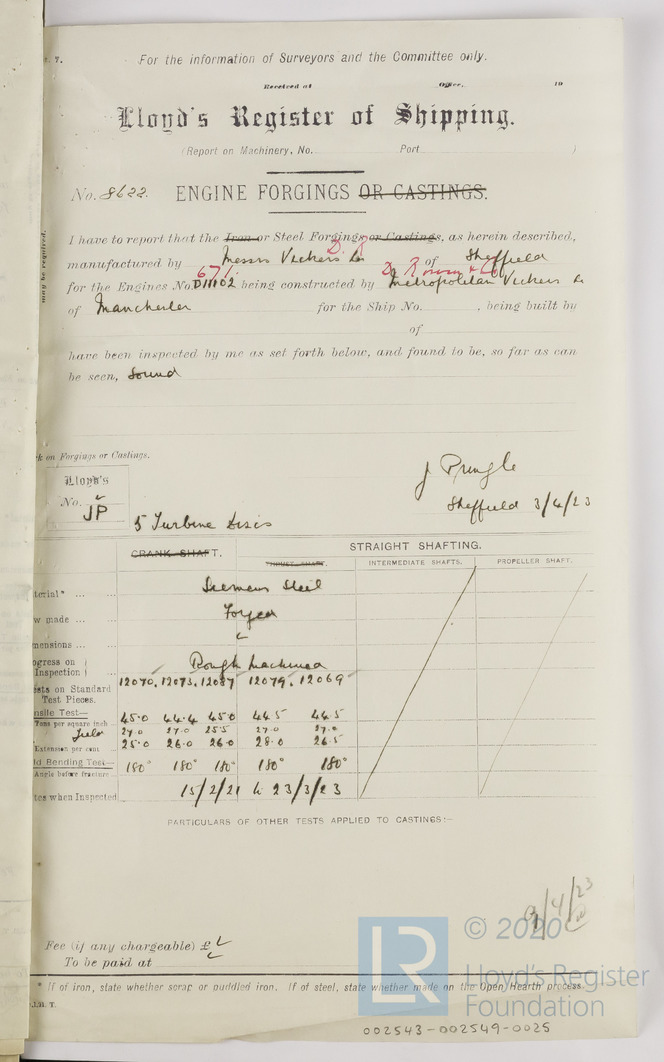 For the information of Surveyors and the Committee only.
Received at Office, 19
Lloyd's Register of Shipping.
(Report on Machinery, No. Port )
No. 8622. ENGINE FORGINGS OR CASTINGS.
I have to report that the Iron or Steel Forgings or Castings, as herein described,
manufactured by Messrs Vickers Ld of Sheffield
D. R
671. D. Rowan & Co
for the Engines No. D11102 being constructed by Metropolitan Vickers
of Manchester for the Ship No. , being built by
of
have been inspected by me as set forth below, and found to be, so far as can
be seen, Sound
may be required.
k on Forgings or Castings.
Lloyd's
No.
JP
J Pringle
Sheffield 3/4/23
5 Turbine Discs
CRANK SHAFT. THRUST SHAFT. STRAIGHT SHAFTING.
INTERMEDIATE SHAFTS. PROPELLER SHAFT.
terial* ... ... Siemens Steel
w made ... ... Forged
mensions ... ...
ogress on } Inspection } ... Rough Machined
ests on Standard Test Pieces. 12070, 12073, 12087 12079, 12069
nsile Test—
Tons per square inch 45.0 44.4 45.0 44.5 44.5
Yield 27.0 27.0 25.5 27.0 27.0
Extension per cent 25.0 26.0 26.0 28.0 26.5
ld Bending Test—
Angle before fracture 180° 180° 180° 180° 180°
tes when Inspected 15/2/21 to 23/3/23
PARTICULARS OF OTHER TESTS APPLIED TO CASTINGS:—
9/4/23
Fee (if any chargeable) £
To be paid at
* If of iron, state whether scrap or puddled iron. If of steel, state whether made on the Open Hearth process.
© 2020
LR
Lloyd's Register
Foundation
002543-002549-0025